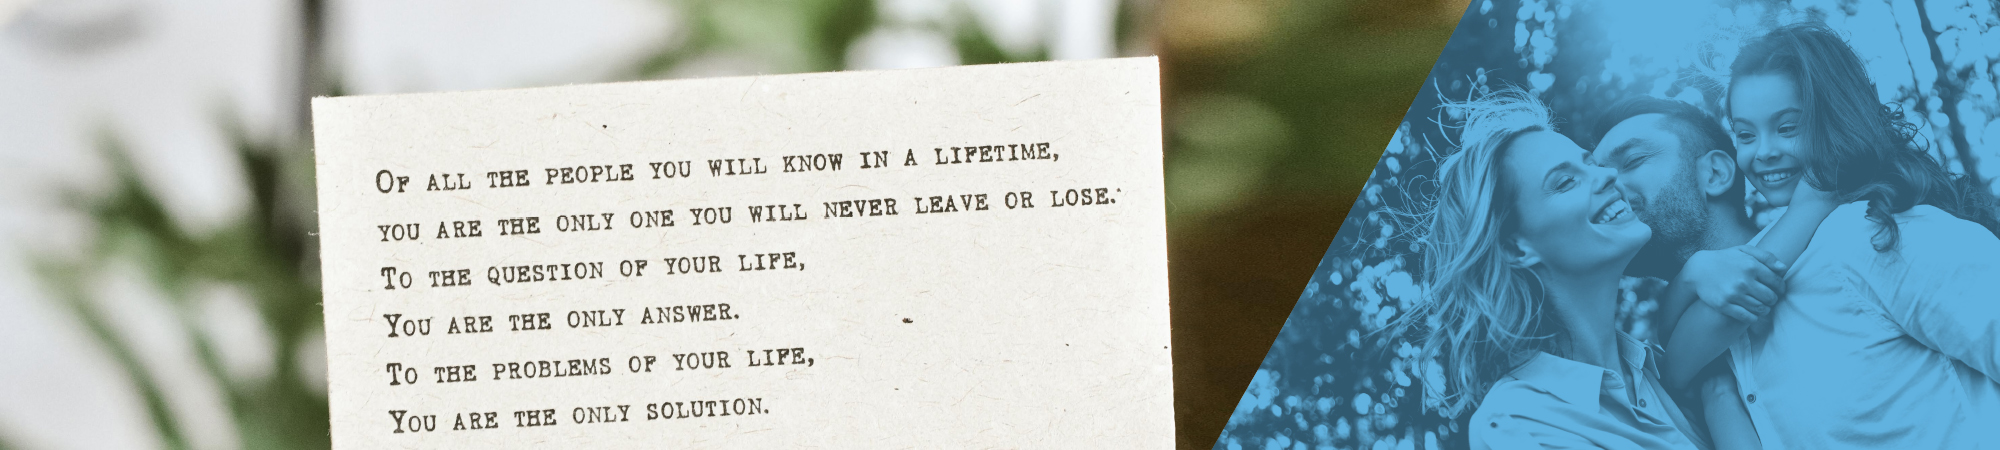 Of all the people you will know in a lifetime,
you are the only one you will never leave or lose.
To the question of your life,
You are the only answer.
To the problems of your life,
You are the only solution.